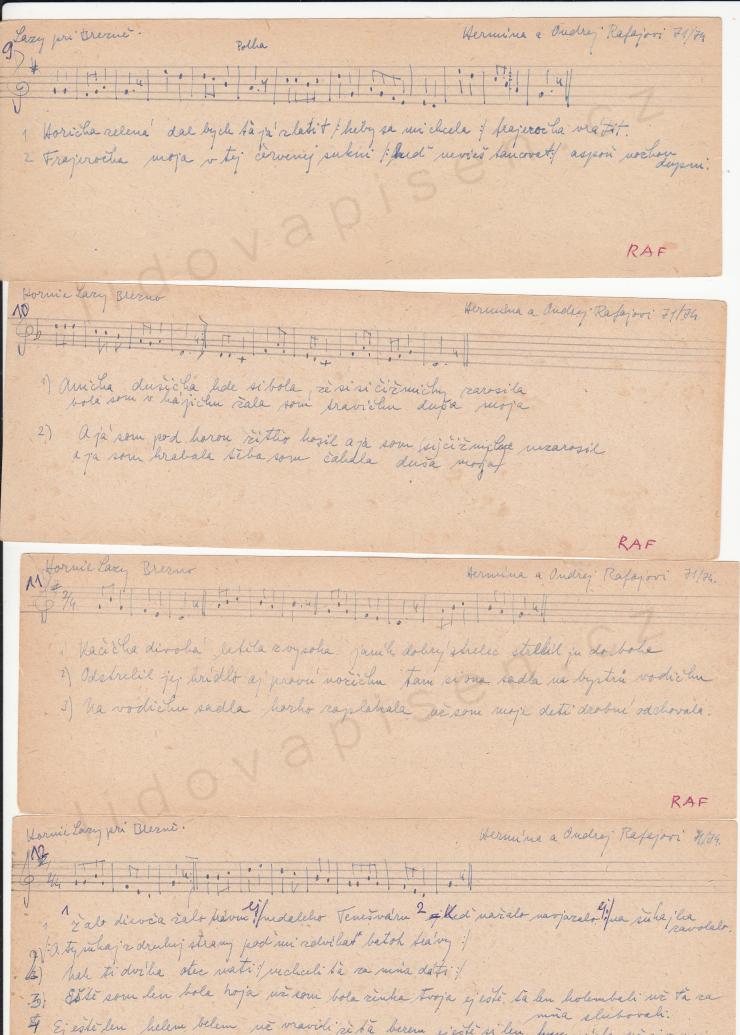 9 Lazy pri Brezně. Hermína a Ondrej Rafajovi 71/74
Polka
1 Horička zelená dal bych ťa já zlatit /: keby sa mi chcela :/ frajeročka vrátit.
2 Frajeročka moja v tej červenej sukni /: keď nevieš tancovat :/ aspoň nožkou
dupni.
RAF
Hornie Lazy Brezno Hermína a Ondrej Rafajovi 71/74
10
1) Anička dušička kde si bola že si si čižmičky zarosila
bola som v hájičku žala som travičku duša moja
2) A já som pod horou žitko kosil a já som si čižmičke nezarosil
a ja som hrabala teba som čakala duša moja
RAF
Hornie Lazy Brezno Hermína a Ondrej Rafajovi 71/74.
11 2/4
1) Kačička divoká letila z vysoka janík dobrý strelec strelil ju do boka
2) Odstrelil jej krídlo aj pravú nožičku tam si ona sadla na bystrú vodičku
3) Na vodičku sadla horko zaplakala už som moje deti drobné odchovala.
RAF
Hornie Lazy pri Brezně. Hermína a Ondrej Rafajovi 71/74.
12 2/4
1 Žalo dievča žalo trávu ej :/ nedaleko Temešváru 2 Keď nažalo naviazalo ej :/ na šuhajka
zavolalo.
/: A ty šuhaj z druhej strany poď mi zdvihať batoh trávy :/
nak ti dvíha otec mati :/ nechceli ťa za mňa dati :/
3) Ešte som len bola moja už som bola žinka tvoja ej ešte ťa len kolembali už ťa za
mňa slubovali.
4 Ej ešte len belem už vravili že ťa berem ej ešte si len
lidovapisen.cz